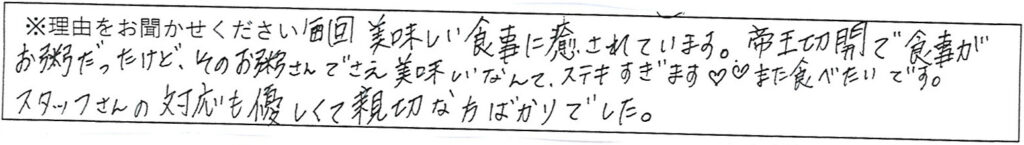 ※理由をお聞かせください/毎回 美味しい食事に癒されています。帝王切開で食事が
お粥だったけど、そのお粥さんでさえ美味しいなんて、ステキすぎます♡♡また食べたいです。
スタッフさんの対応も優しくて親切な方ばかりでした。